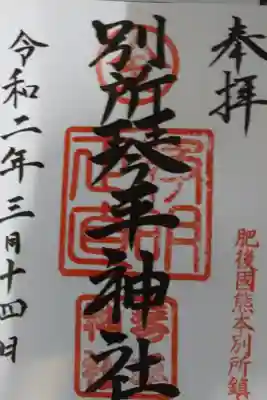 奉拝
肥後國熊本別所鎮
別所琴平神社
令和二年三月十四日